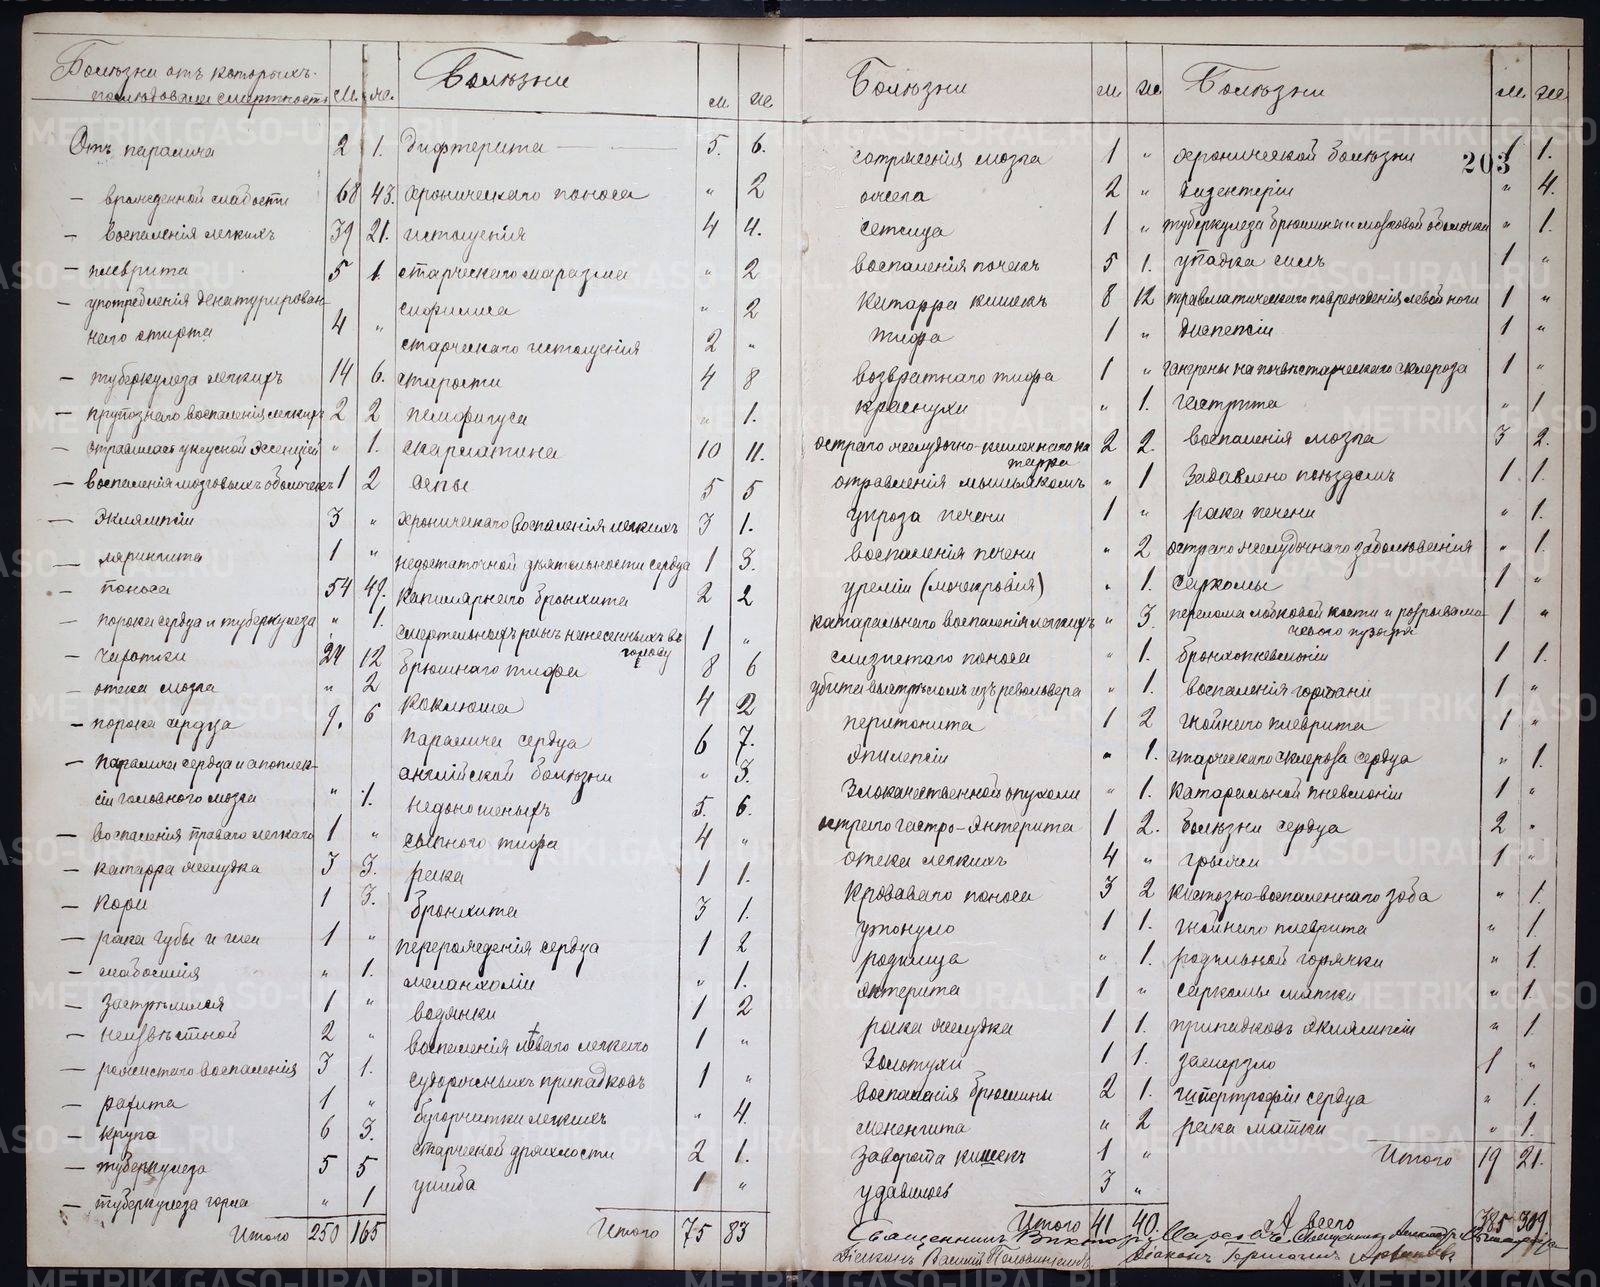 Болѣзни отъ которыхъ
послѣдовала смертность М. Ж.
Отъ паралича 2 1.
— врожденной слабости 68 43.
— воспаленія легкихъ 39 21.
— плеврита 5 1.
— употребленія денатурирован-
наго спирта 4 „
— туберкулеза легкихъ 14 6.
— крупознаго воспаленія легкихъ 2 2
— отравилась уксусной эссенціей „ 1.
— воспаленія мозговыхъ оболочекъ 1 2
— эклямпсіи 3 „
— лярингита 1 „
— поноса 54 47.
— порока сердца и туберкулеза „ 1.
— чахотки 24 12
— отека мозга „ 2
— порока сердца 9. 6
— паралича сердца и апоплек-
сіи головного мозга „ 1.
— воспаленія праваго легкаго 1 „
— катарра желудка 3 3.
— кори 1 3.
— рака губы и шеи 1 „
— малосилія „ 1.
— застрѣлился 1 „
— неизвѣстной 2 „
— рожистаго воспаленія 3 1.
— рахита 1 „
— крупа 6 3.
— туберкулеза 5 5
— туберкулеза горла „ 1
Итого 250 165
Болѣзни М. Ж.
дифтерита 5. 6.
хроническаго поноса „ 2
истощенія 4 4.
старческаго маразма „ 2
сифилиса „ 2
старческаго истощенія 2 „
старости 4 8
пемфигуса „ 1.
скарлатина 10 11.
оспы 5 5
хроническаго воспаленія легкихъ 3 1.
недостаточной дѣятельности сердца 1 3.
капилярнаго бронхита 2 2
смертельныхъ ранъ нанесенныхъ въ
голову 1 „
брюшнаго тифа 8 6
коклюша 4 2
паралича сердца 6 7.
англійской болѣзни „ 3.
недоношеныхъ 5. 6.
сыпного тифа 4 „
рака 1 1.
бронхита 3 1.
перерожденія сердца 1 2
меланхоліи „ 1.
водянки 1 2
воспаленія лѣваго легкаго 1 „
судорожныхъ припадковъ 1 „
бугорчатки легкихъ „ 4.
старческой дряхлости 2 1.
ушиба 1 „
Итого 75 83
Болѣзни М. Ж.
сотрясенія мозга 1 „
ожога 2 „
сепсиса 1 „
воспаленія почекъ 5 1.
катарра кишекъ 8 12
тифа 1 „
возвратнаго тифа 1 „
краснухи „ 1.
остраго желудочно-кишечнаго ка
тарра 2 2.
отравленія мышьякомъ „ 1
цирроза печени 1 „
воспаленія печени „ 2
уреміи (мочекровія) „ 1.
катаральнаго воспаленія легкихъ „ 3.
слизистаго поноса „ 1.
убита выстрѣломъ изъ револьвера „ 1.
перитонита 1 2
эпилепсіи „ 1.
злокачественной опухоли „ 1.
остраго гастро-энтерита 1 2.
отека легкихъ 4 „
кроваваго поноса 3 2
утонуло 1 1.
родимца „ 1.
энтерита 1 „
рака желудка 1 1.
золотухи 1 1.
воспаленія брюшины 2 1.
менингита „ 2
заворота кишекъ 1 „
удавился 3 „
Итого 41 40.
Болѣзни М. Ж.
203
хронической болѣзни 1 1.
дизентеріи „ 4.
туберкулеза брюшины и мозговой оболочки „ 1.
упадка силъ 1 „
травматическаго поврежденія левой ноги 1 „
диспепсіи 1 „
гангрены на почвѣ старческаго склероза 1 „
гастрита „ 1.
воспаленія мозга 3 2.
задавлено поѣздомъ 1 1.
рака печени „ 1.
остраго желудочнаго заболѣванія „ 1.
саркомы 1 „
перелома лобковой кости и разрыва мо-
чевого пузыря 1 „
бронхопневмоніи 1 1.
воспаленія гортани 1 „
гнойнаго плеврита 1 „
старческаго склероза сердца „ 1.
катаральной пневмоніи 1 „
болѣзни сердца 2 „
грыжи 1 „
кистозно-воспаленнаго зоба „ 1.
гнойнаго плеврита „ 1.
родильной горячки „ 1.
саркомы матки „ 1.
припадковъ эклямпсіи „ 1.
замерзло 1 „
гипертрофіи сердца „ 1.
рака матки „ 1.
Итого 19 21.
А всего 385 309
Священникъ Викторъ Священникъ Александръ
Діаконъ Василій Діаконъ
METRIKI.GASO-URAL.RU